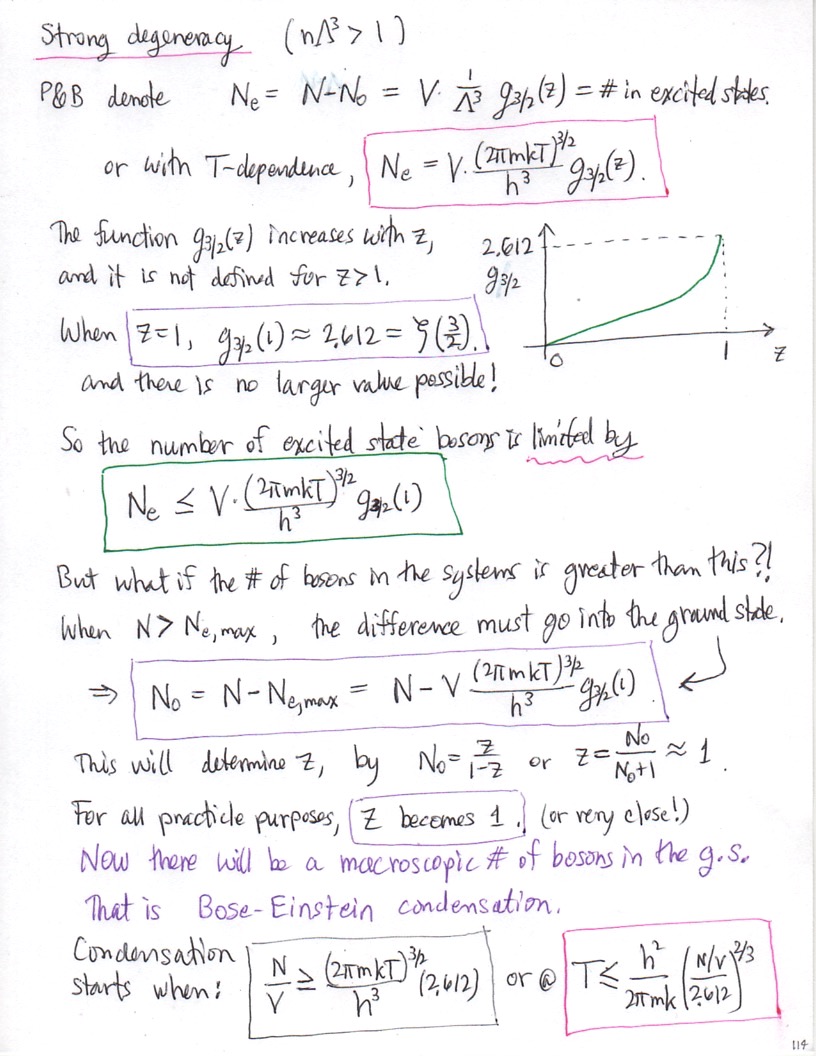 Strong degeneracy (nΛ³ > 1)
P&B denote Ne = N-N₀ = V· 1/Λ³ g3/2(z) = # in excited states.
or with T-dependence, Ne = V· (2πmkT)^3/2 / h³ g3/2(z).
The function g3/2(z) increases with z,
and it is not defined for z>1.
2.612
g3/2
0
1
z
When z=1, g3/2(1) ≈ 2.612 = ζ(3/2).
and there is no larger value possible!
So the number of excited state bosons is limited by
Ne ≤ V·(2πmkT)^3/2 / h³ g3/2(1)
But what if the # of bosons in the systems is greater than this?!
When N > Ne,max, the difference must go into the ground state.
⇒ N₀ = N - Ne,max = N - V (2πmkT)^3/2 / h³ g3/2(1)
This will determine z, by N₀ = z/1-z or z = N₀/N₀+1 ≈ 1.
For all practicle purposes, z becomes 1. (or very close!)
Now there will be a macroscopic # of bosons in the g.s.
That is Bose-Einstein condensation.
Condensation starts when: N/V ≥ (2πmkT)^3/2 / h³ (2.612) or @ T ≤ h²/2πmk (N/V / 2.612)^2/3
114